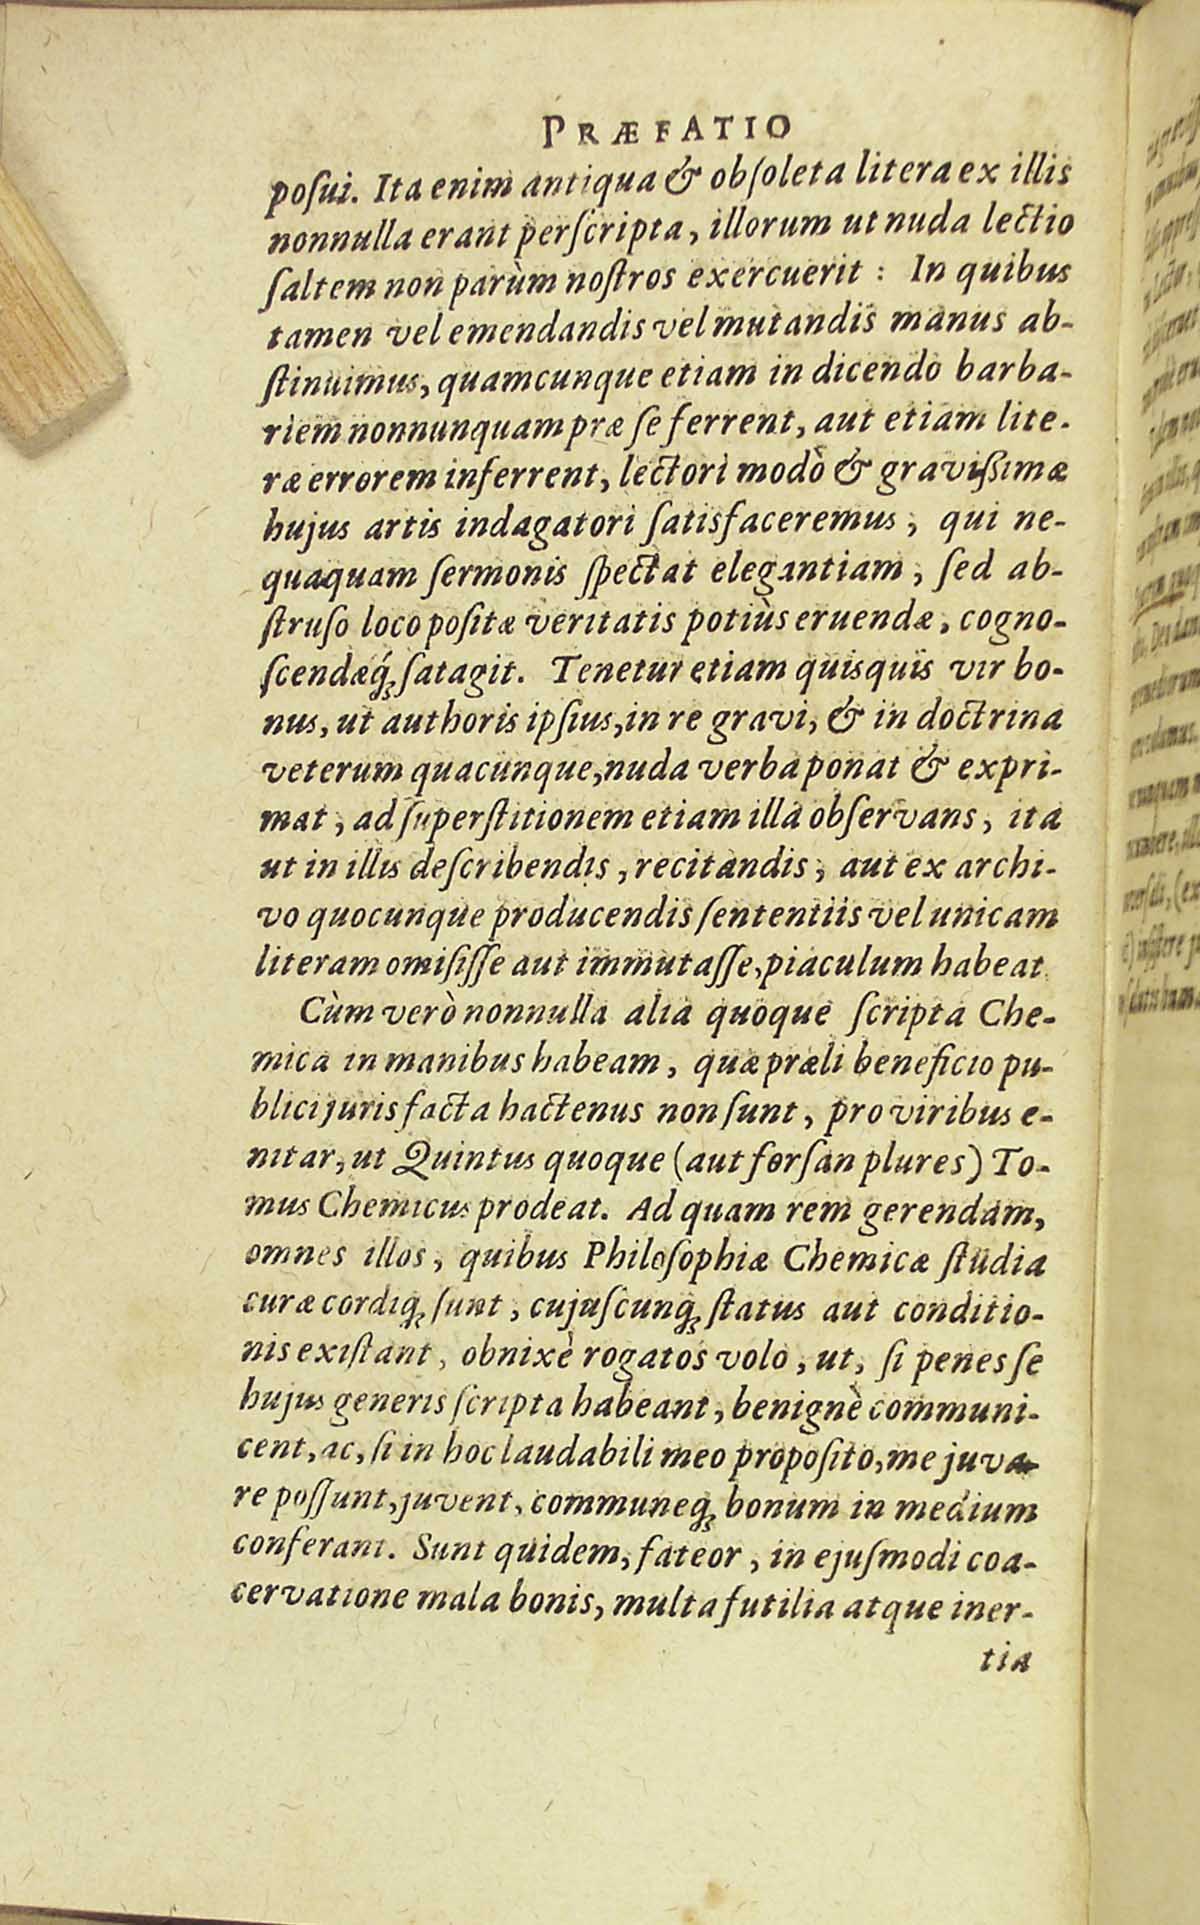 PRÆFATIO
posui. Ita enim antiqua & obsoleta litera ex illis
nonnulla erant perscripta, illorum ut nuda lectio
saltem non parùm nostros exercuerit : In quibus
tamen vel emendandis vel mutandis manus ab-
stinuimus, quamcunque etiam in dicendo barba-
riem nonnunquam præ se ferrent, aut etiam lite-
ræ errorem inferrent, lectori modò & gravißimæ
hujus artis indagatori satisfaceremus, qui ne-
quaquam sermonis spectat elegantiam, sed ab-
struso loco positæ veritatis potiùs eruendæ, cogno-
scendæq́ꝫ satagit. Tenetur etiam quisquis vir bo-
nus, ut authoris ipsius, in re gravi, & in doctrina
veterum quacunque, nuda verba ponat & expri-
mat, ad superstitionem etiam illa observans, ita
ut in illis describendis, recitandis, aut ex archi-
vo quocunque producendis sententiis vel unicam
literam omisisse aut immutasse, piaculum habeat
Cùm verò nonnulla alia quoque scripta Che-
mica in manibus habeam, quæ præli beneficio pu-
blici juris facta hactenus non sunt, pro viribus e-
nitar, ut Quintus quoque (aut forsan plures) To-
mus Chemicus prodeat. Ad quam rem gerendam,
omnes illos, quibus Philosophiæ Chemicæ studia
curæ cordiqꝫ sunt, cujuscunqꝫ status aut conditio-
nis existant, obnixè rogatos volo, ut, si penes se
hujus generis scripta habeant, benignè communi-
cent, ac, si in hoc laudabili meo proposito, me juva-
re possunt, juvent, communeqꝫ bonum in medium
conferant. Sunt quidem, fateor, in ejusmodi coa-
cervatione mala bonis, multa futilia atque iner-
tia